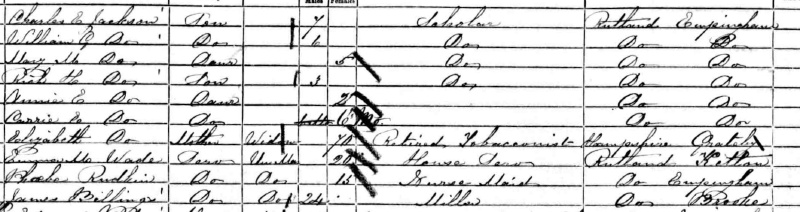 Charles E Jackson Son 7 Scholar Rutland Empingham
William G Do Do 6 Do Do Do
Mary M Do Daur 5 Do Do Do
Rich H Do Son 3 Do Do Do
Minnie E Do Daur 2 Do Do
Carrie Do Do 6 Mo Do Do
Elizabeth Do Mother Widow 70 Retired Tobacconist Hampshire Grateley
Emma M Wade Serv Unm 20 House Serv Rutland Ketton
Phoebe Rudkin Do Do 15 Nurse Maid Do Empingham
James Billings Do Do 24 Miller Do Brooke